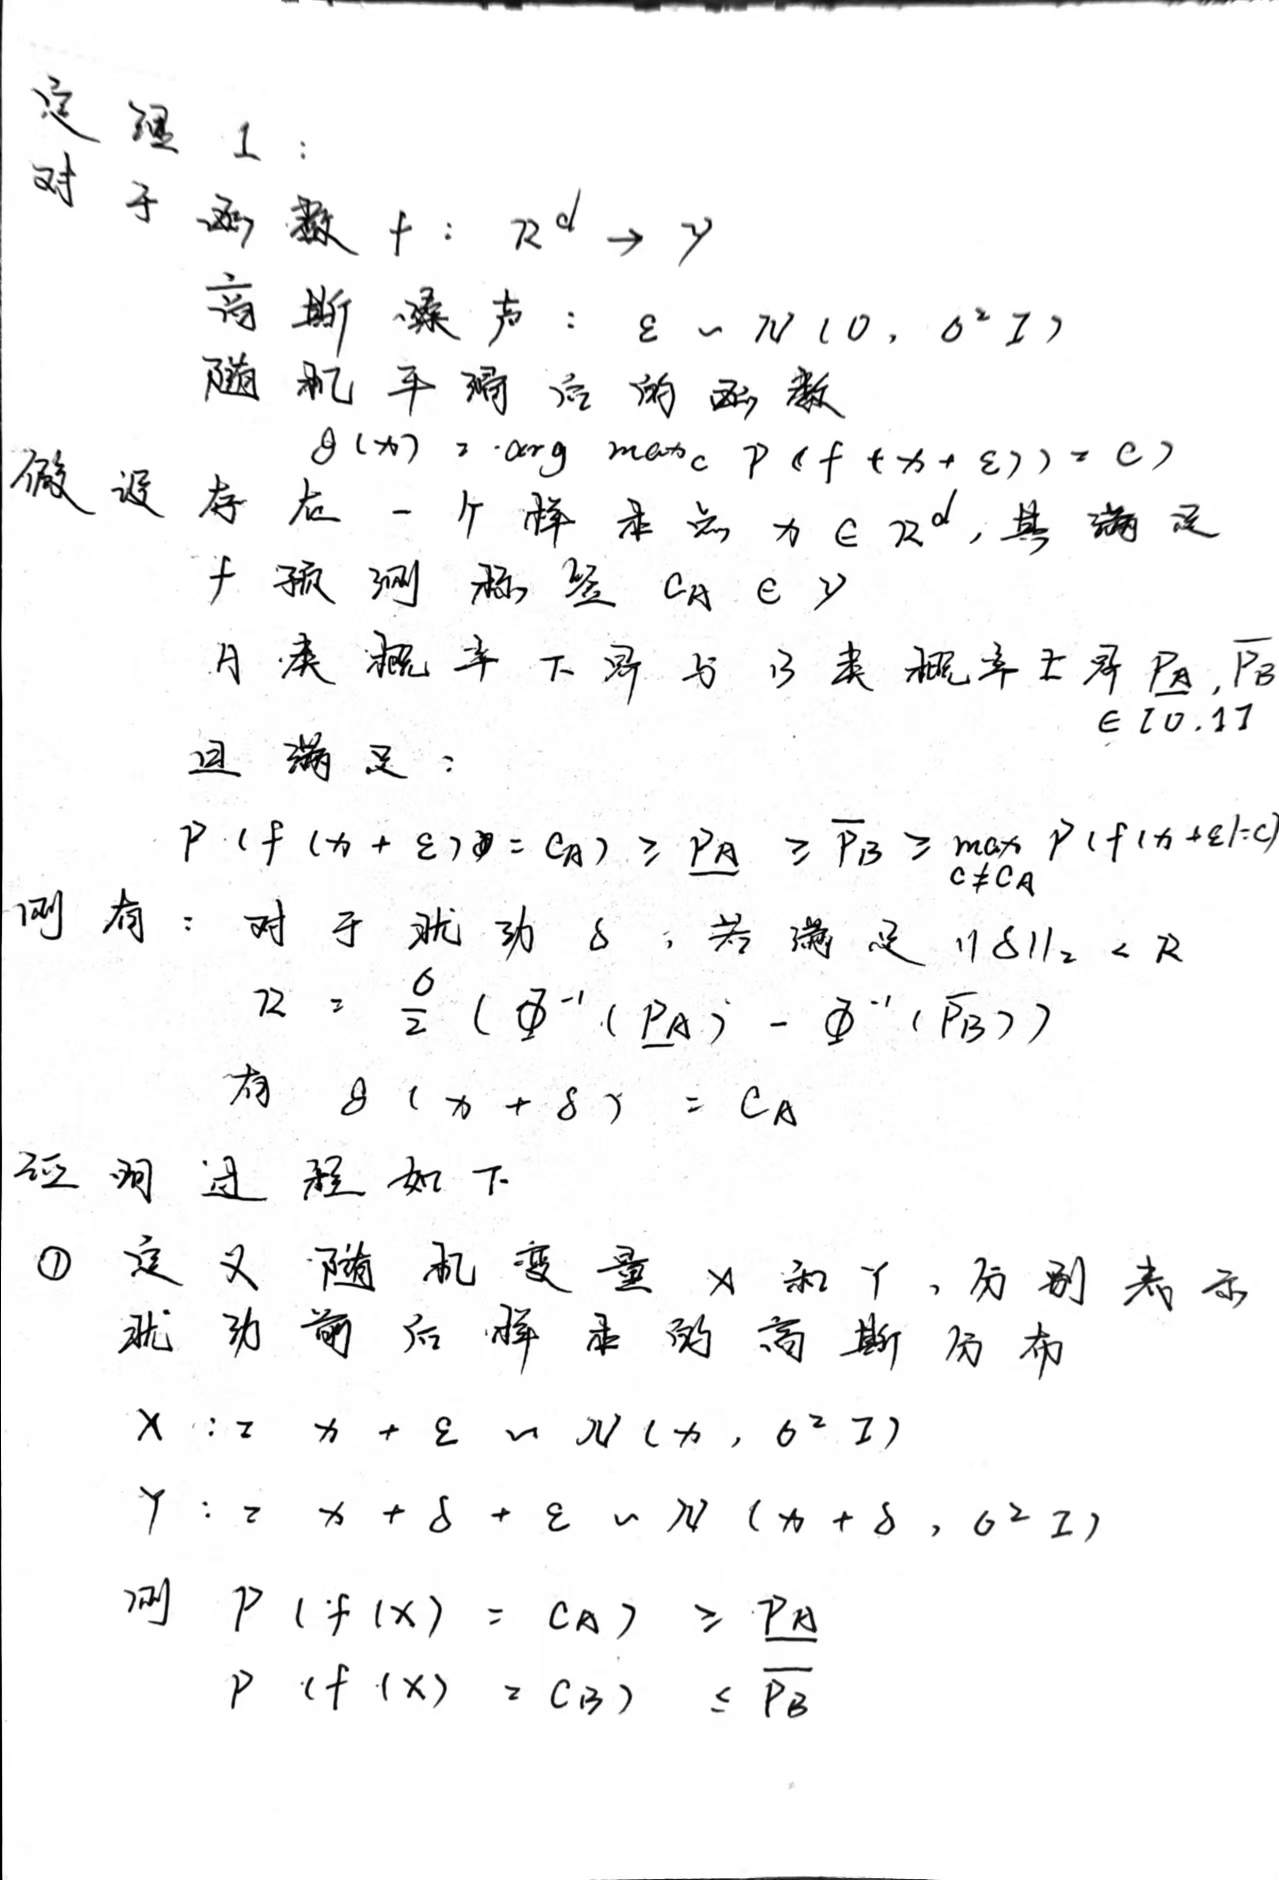 定理1:
对于函数 f: R^d → Y
高斯噪声: ε ~ N(0, σ² I)
随机平滑后的函数
g(x) = arg max_c P(f(x+ε)) = c)
假设存在一个样本点 x ∈ R^d, 其满足
f 预测标签 C_A ∈ Y
A类概率下界与B类概率上界 \underline{P_A}, \overline{P_B}
∈ [0, 1]
且满足:
P(f(x+ε) = C_A) ≥ \underline{P_A} ≥ \overline{P_B} ≥ max_{c≠C_A} P(f(x+ε)=c)
则有: 对于扰动 δ, 若满足 ||δ||₂ < R
R = \frac{σ}{2} (Φ^{-1}(\underline{P_A}) - Φ^{-1}(\overline{P_B}))
有 g(x+δ) = C_A
证明过程如下
① 定义随机变量 X 和 Y, 分别表示
扰动前后样本的高斯分布
X := x + ε ~ N(x, σ² I)
Y := x + δ + ε ~ N(x+δ, σ² I)
则 P(f(X) = C_A) ≥ \underline{P_A}
P(f(X) = C_B) ≤ \overline{P_B}